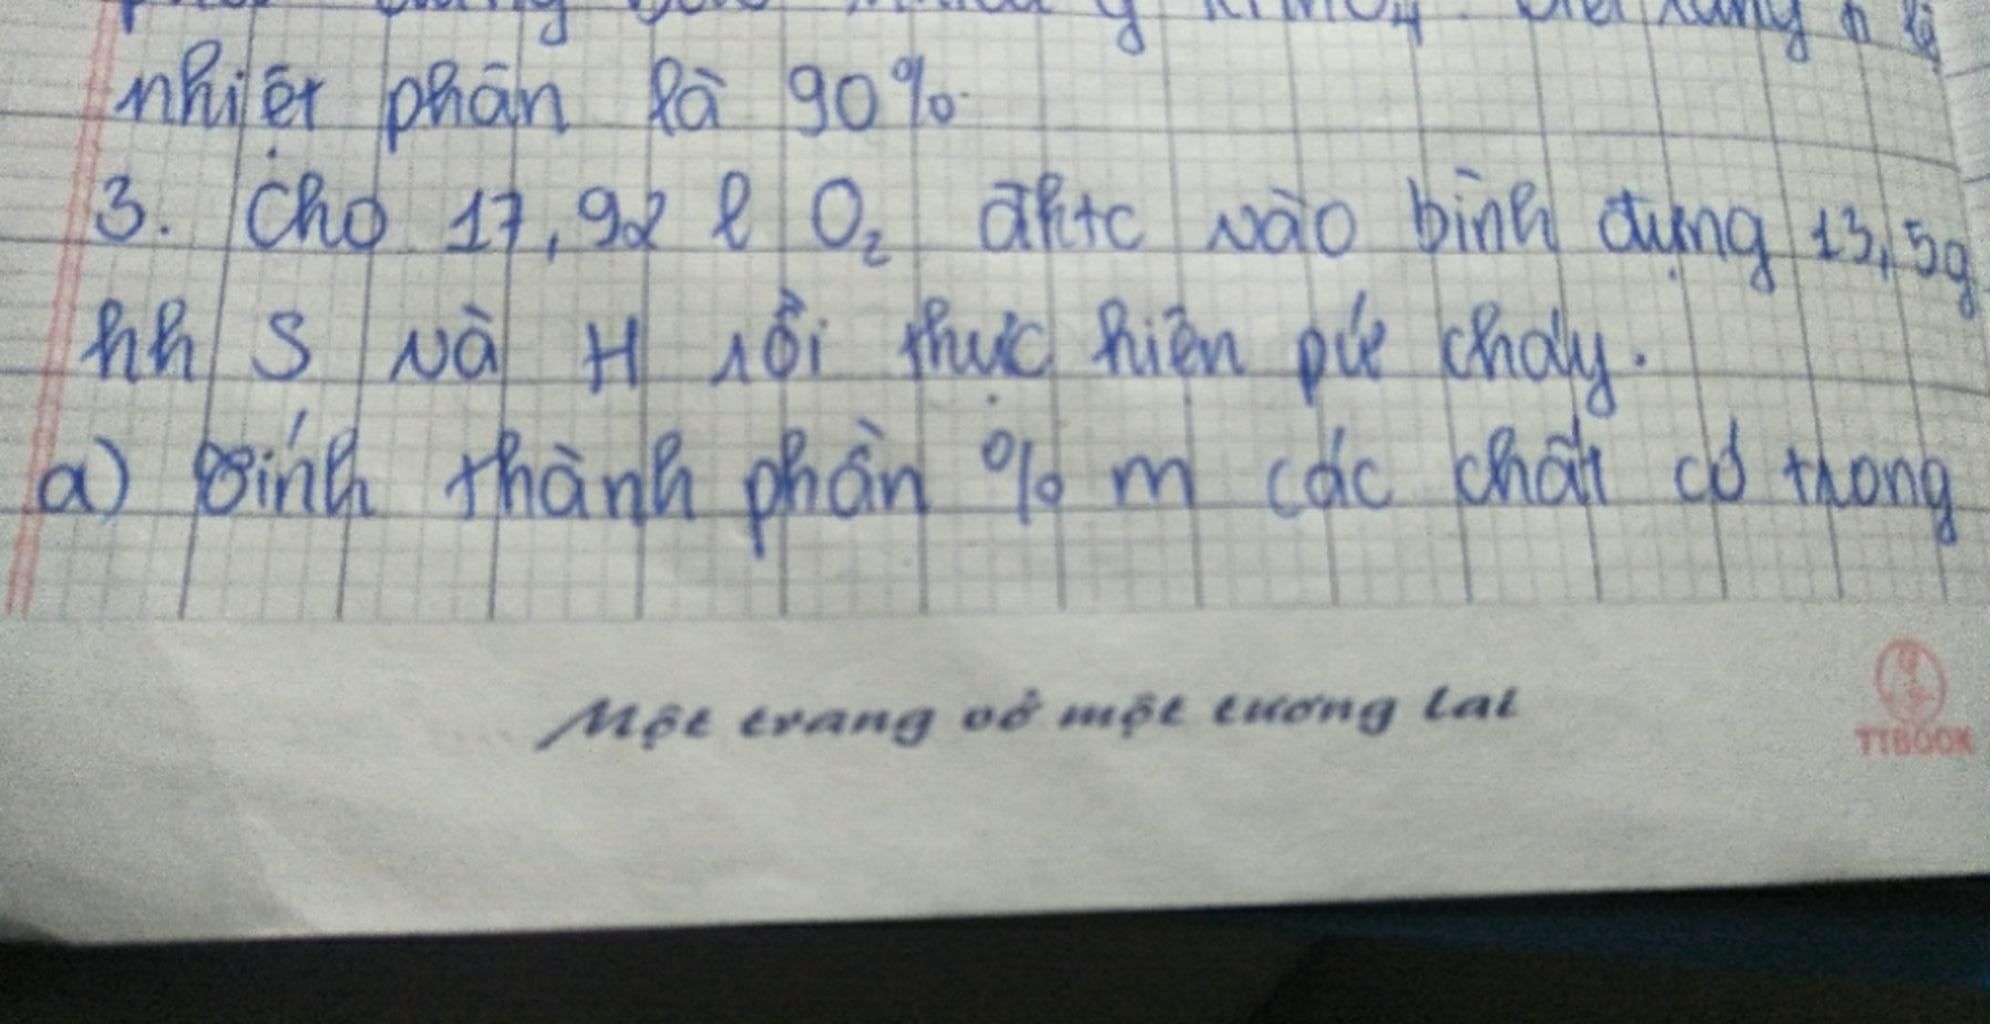 KMnO4. Biết rằng
nhiệt phân là 90%.
3. Cho 17,92 l O2 đktc vào bình đựng 13,5g
hh S và H rồi thực hiện pứ cháy.
a) Tính thành phần % m các chất có trong
Một trang vở một tương lai
TTBOOK